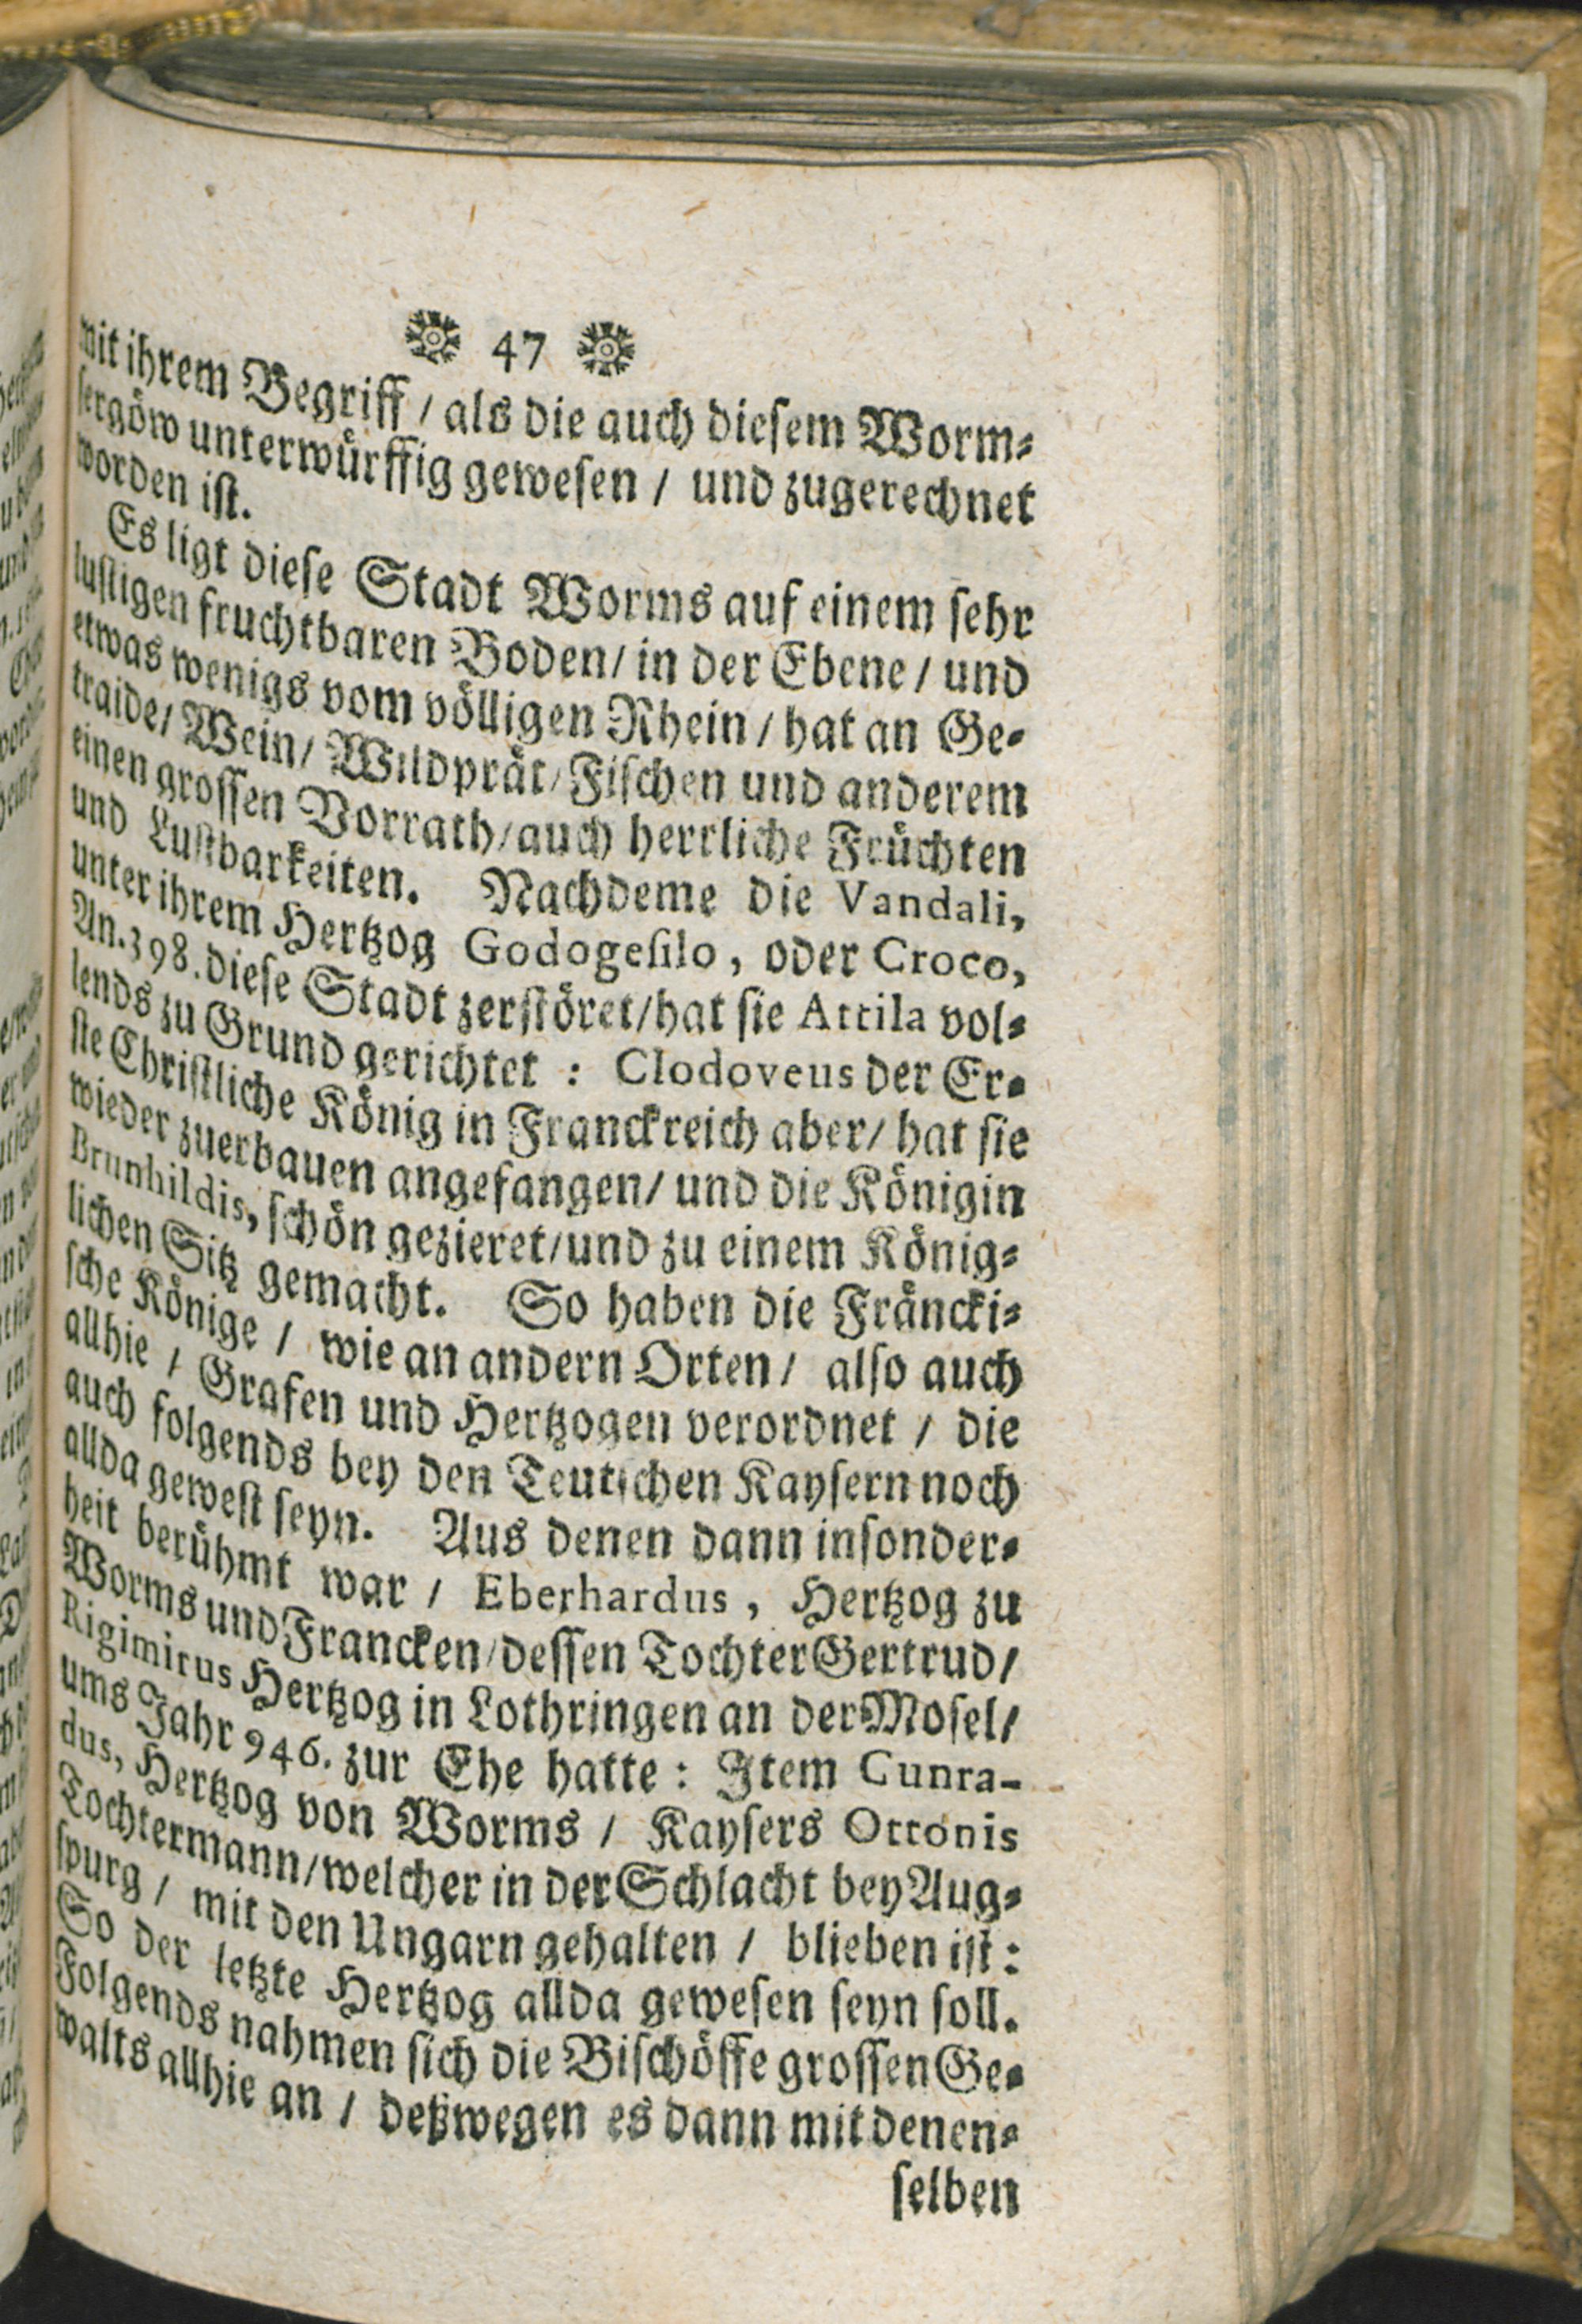 47
mit ihrem Begriff / als die auch diesem Worm-
sergöw unterwürffig gewesen / und zugerechnet
worden ist.
Es ligt diese Stadt Worms auf einem sehr
lustigen fruchtbaren Boden / in der Ebene / und
etwas wenigs vom völligen Rhein / hat an Ge-
traide / Wein / Wildprät / Fischen und anderem
einen grossen Vorrath / auch herrliche Früchten
und Lustbarkeiten. Nachdeme die Vandali,
unter ihrem Hertzog Godogesilo, oder Croco,
An. 398. diese Stadt zerstöret / hat sie Attila vol-
lends zu Grund gerichtet : Clodoveus der Er-
ste Christliche König in Franckreich aber / hat sie
wieder zuerbauen angefangen / und die Königin
Brunhildis, schön gezieret / und zu einem König-
lichen Sitz gemacht. So haben die Fräncki-
sche Könige / wie an andern Orten / also auch
allhie / Grafen und Hertzogen verordnet / die
auch folgends bey den Teutschen Kaysern noch
allda gewest seyn. Aus denen dann insonder-
heit berühmt war / Eberhardus, Hertzog zu
Worms und Francken / dessen Tochter Gertrud /
Rigimirus Hertzog in Lothringen an der Mosel /
ums Jahr 946. zur Ehe hatte : Item Cunra-
dus, Hertzog von Worms / Kaysers Ottonis
Tochtermann / welcher in der Schlacht bey Aug-
spurg / mit den Ungarn gehalten / blieben ist :
So der letzte Hertzog allda gewesen seyn soll.
Folgends nahmen sich die Bischöffe grossen Ge-
walts allhie an / deßwegen es dann mit denen-
selben